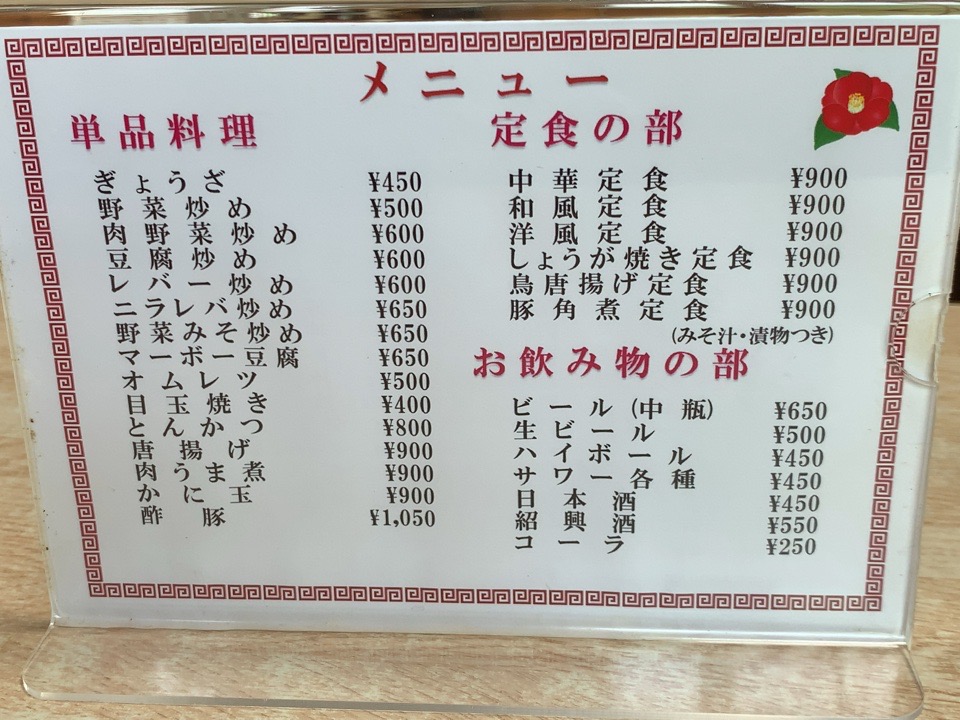 メニュー
単品料理
ぎょうざ ¥450
野菜炒め ¥500
肉野菜炒め ¥600
豆腐炒め ¥600
レバー炒め ¥600
ニラレバ炒め ¥650
野菜みそ炒め ¥650
マーボー豆腐 ¥650
オムレツ ¥500
目玉焼き ¥400
とんかつ ¥800
唐揚げ ¥900
肉うま煮 ¥900
かに玉 ¥900
酢豚 ¥1,050
定食の部
中華定食 ¥900
和風定食 ¥900
洋風定食 ¥900
しょうが焼き定食 ¥900
鳥唐揚げ定食 ¥900
豚角煮定食 ¥900
(みそ汁・漬物つき)
お飲み物の部
ビール(中瓶) ¥650
生ビール ¥500
ハイボール ¥450
サワー各種 ¥450
日本酒 ¥450
紹興酒 ¥550
コーラ ¥250